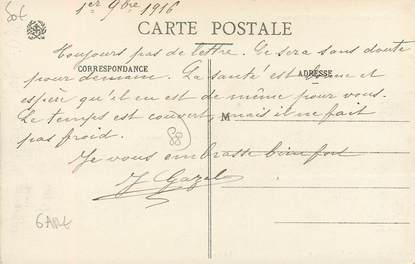 50t
1er 9bre 1916
CARTE POSTALE
Toujours pas de lettre. Ce sera sans doute
CORRESPONDANCE
ADRESSE
pour demain. La santé est bonne et
espère qu'il en est de même pour vous.
Le temps est couvert, mais il ne fait
M
pas froid.
88
Je vous embrasse bien fort
J Gazel